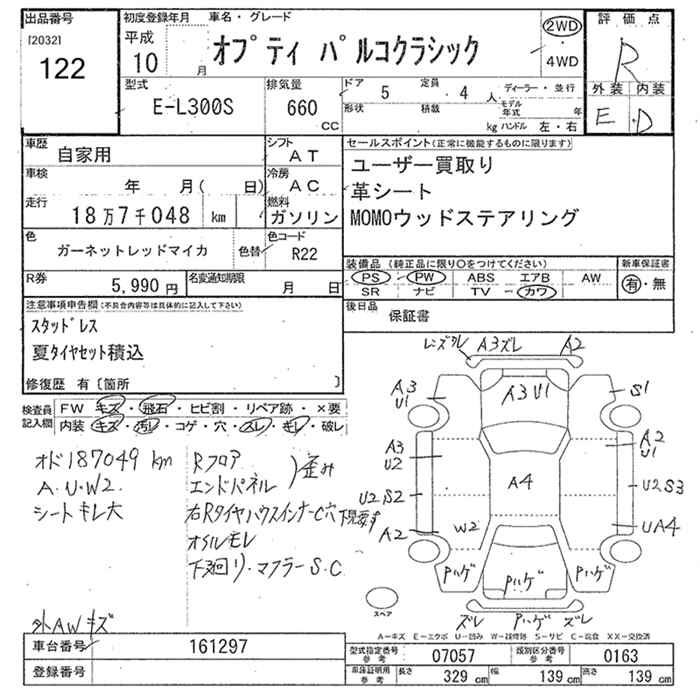 出品番号
[2032]
122
初度登録年月
平成
10 月
車名・グレード
オプティ パルコクラシック
2WD
・
4WD
評価点
R
外装 内装
E・D
型式
E-L300S
排気量
660
CC
ドア 5 定員 4 人
形状 積載 kg
ディーラー・並行
モデル年式 年
ハンドル 左・右
車歴 自家用
シフト AT
車検 年 月( 日)
冷房 AC
走行 18万7千048 km
燃料 ガソリン
色 ガーネットレッドマイカ
色替
色コード R22
R券 5,990円
名変通知期限 月 日
セールスポイント(正常に機能するものに限ります)
ユーザー買取り
革シート
MOMOウッドステアリング
装備品(純正品に限り○をつけてください)
PS・PW・ABS エアB・AW
SR ナビ TV・カワ
新車保証書
有・無
後日品 保証書
注意事項申告欄(不具合内容等は具体的に記入して下さい)
スタッドレス
夏タイヤセット積込
修復歴 有〔箇所 〕
検査員記入欄
FW キズ・飛石・ヒビ割・リペア跡・×要
内装 キズ・汚レ・コゲ・穴・スレ・キレ・破レ
オド187049km
A.U.W2.
シートキレ大
Rフロア
エンドパネル
)歪み
右RタイヤハウスインナーC穴 下見要す
オイルモレ
下廻り・マフラーS.C
外AWキズ
レンズワレ A3ズレ A2
A3
U1
A3U1
S1
A3
U2
A2
U1
A4
U2S2
U2S3
A2
W2
UA4
Pハゲ
Pハゲ
Pハゲ
ズレ Pハゲ ズレ
スペア
A―キズ E―エクボ U―凹み W―補修跡 S―サビ C―腐食 XX―交換済
車台番号 161297
登録番号
型式指定番号 参考 07057
類別区分番号 参考 0163
車庫証明用 参考 長さ 329 cm 幅 139 cm 高さ 139 cm